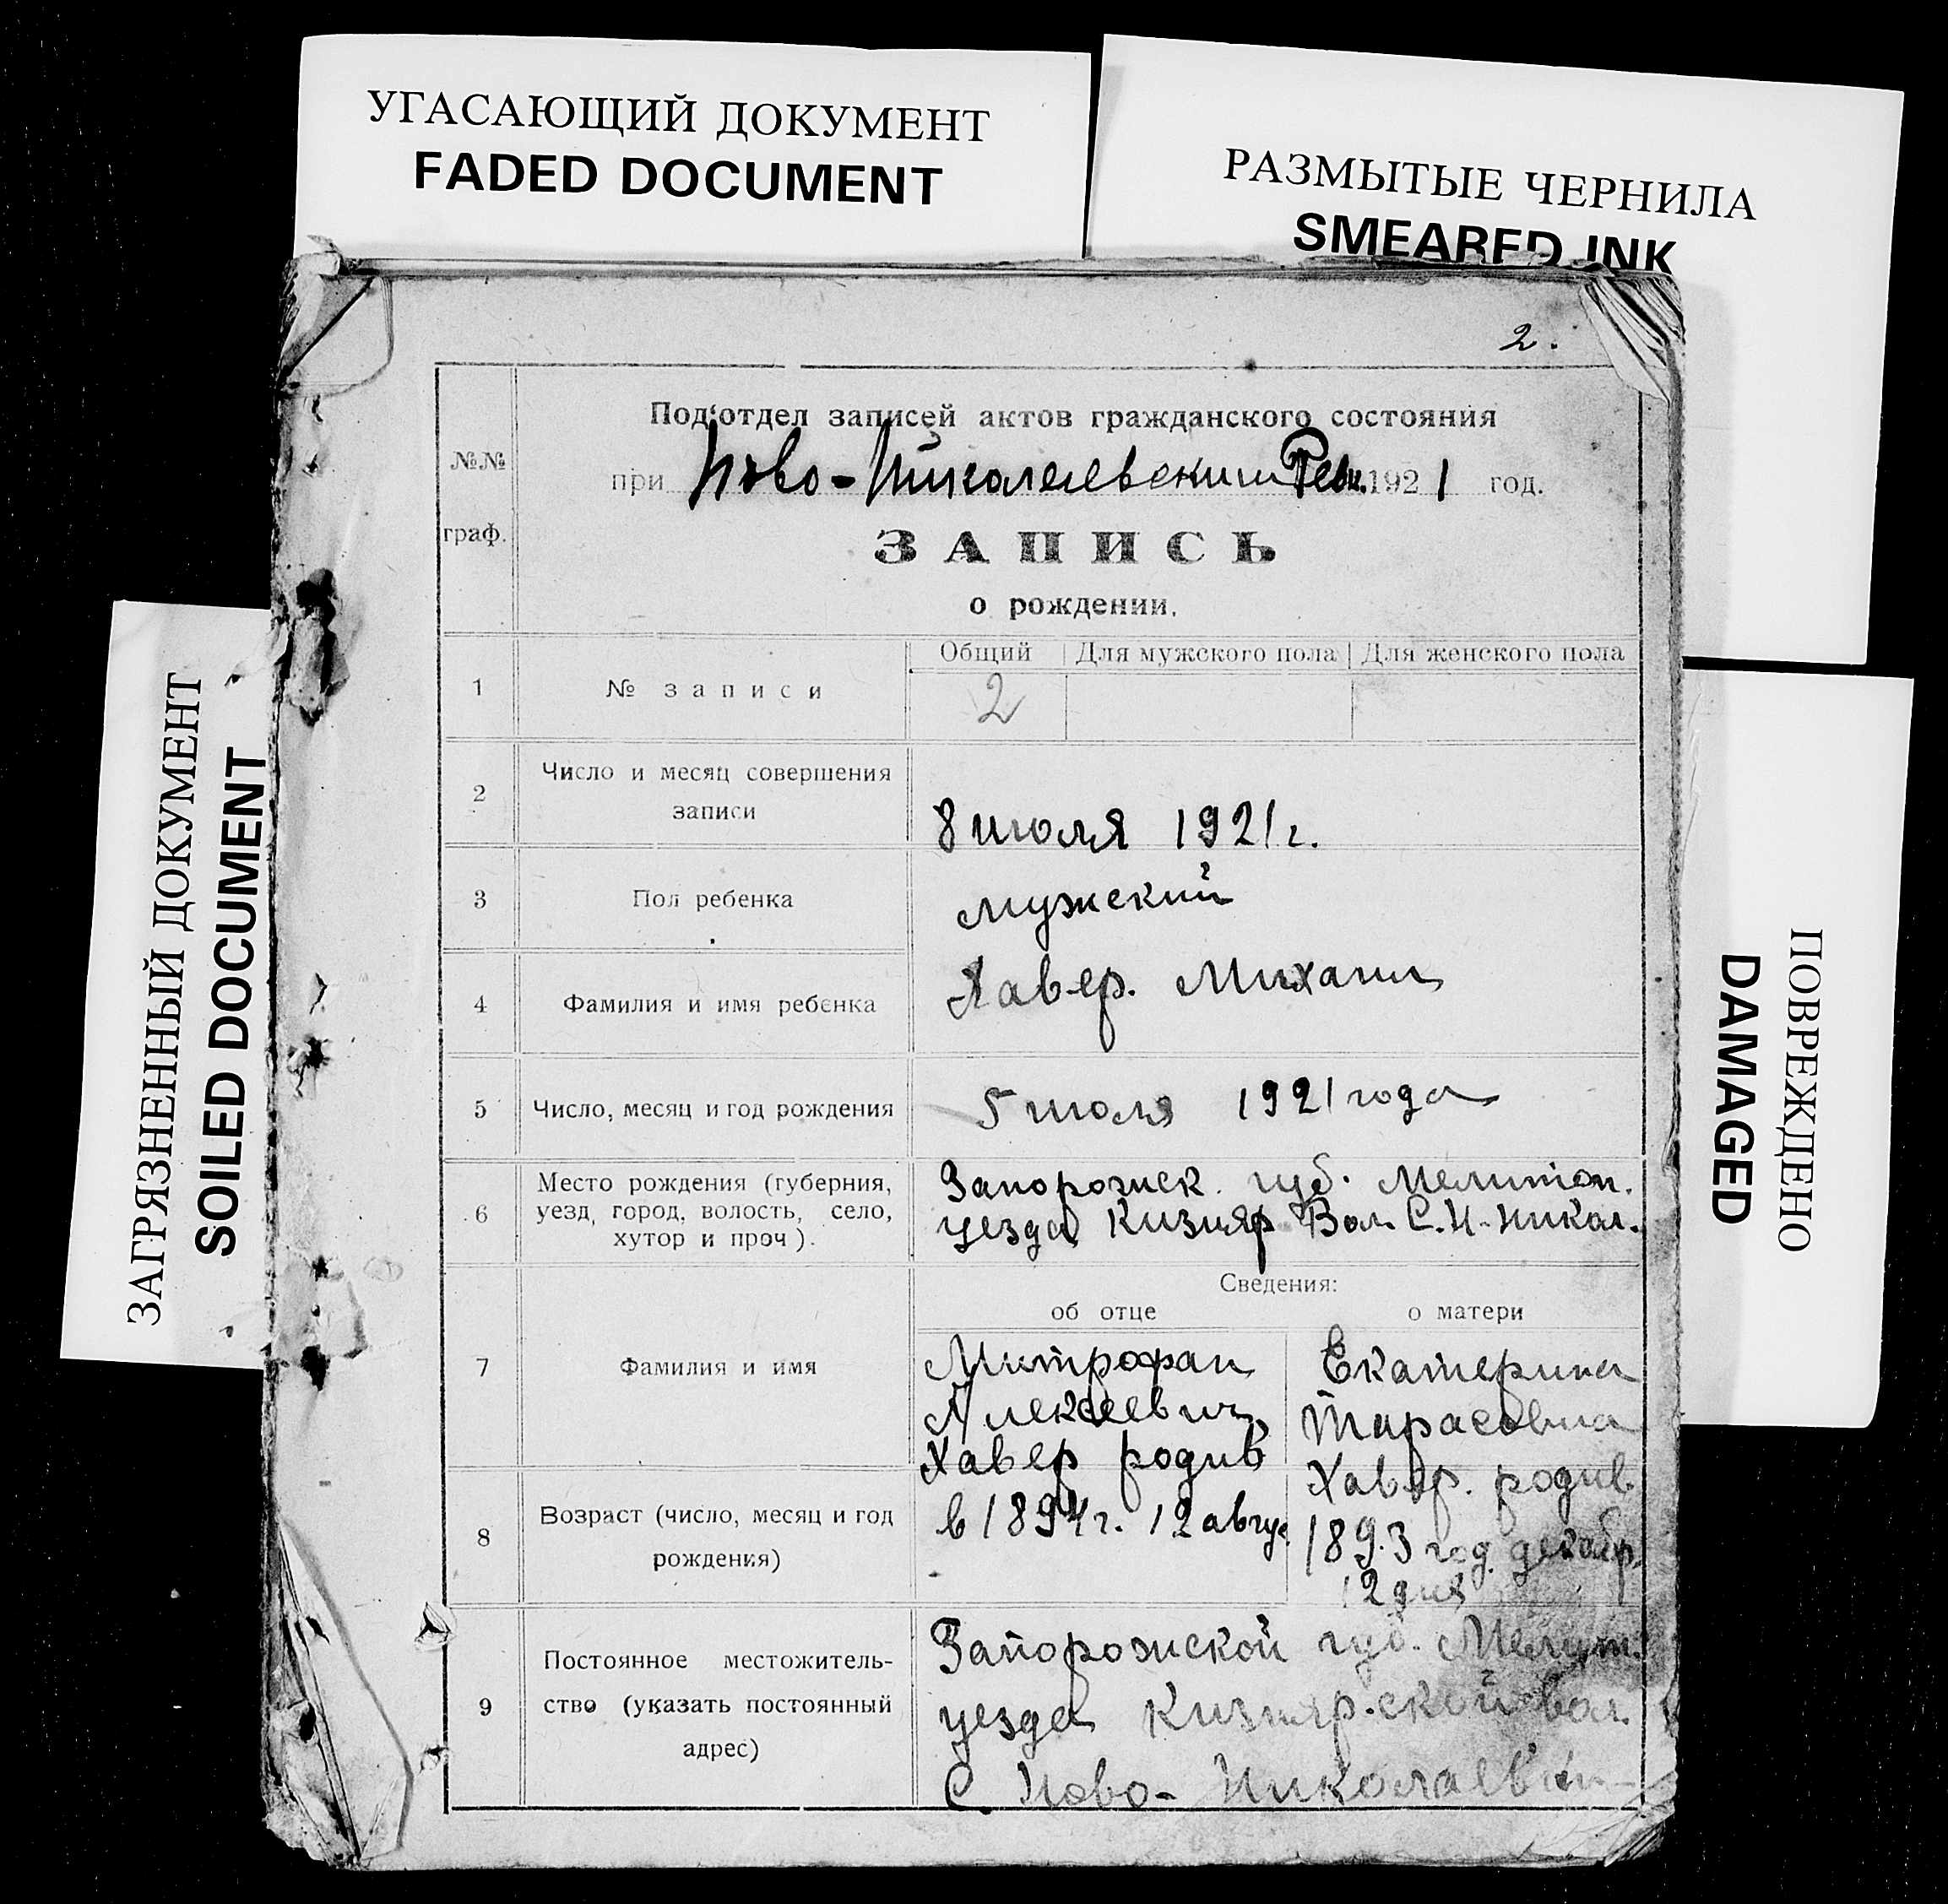 УГАСАЮЩИЙ ДОКУМЕНТ
FADED DOCUMENT
РАЗМЫТЫЕ ЧЕРНИЛА
SMEARED INK
ЗАГРЯЗНЕННЫЙ ДОКУМЕНТ
SOILED DOCUMENT
ПОВРЕЖДЕНО
DAMAGED
2.
№№
граф.
Подотдел записей актов гражданского состояния
при Ново-Николаевским Ревк. 1921 год.
ЗАПИСЬ
о рождении.
Общий Для мужского пола Для женского пола
1 № записи 2
2 Число и месяц совершения
записи
8 июля 1921 г.
3 Пол ребенка мужский
4 Фамилия и имя ребенка Хавер. Михаил
5 Число, месяц и год рождения 5 июля 1921 года
6 Место рождения (губерния,
уезд, город, волость, село,
хутор и проч).
Запорожск. губ. Мелитоп.
уезда Кизияр Вол. С. Н-Никол.
Сведения:
об отце о матери
7 Фамилия и имя
Митрофан
Алексеевич
Хавер родив
Екатерина
Тарасовна
Хавер. родив
8 Возраст (число, месяц и год
рождения)
в 1894 г. 12 авгус
1893 год. декабр.
12 дня
9 Постоянное местожитель-
ство (указать постоянный
адрес)
Запорожской губ. Мелит.
уезда Кизияр.ской вол.
С. Ново-